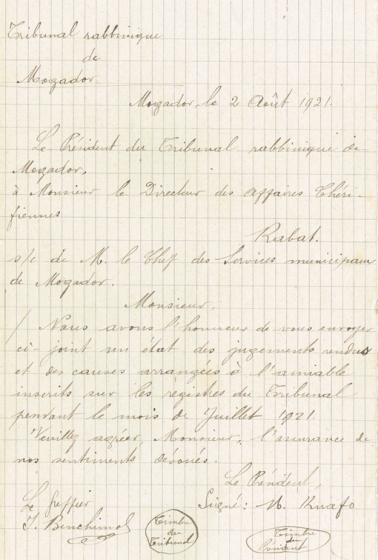 Tribunal rabbinique
de
Mogador
Mogador, le 2 Août 1921.
Le Président du Tribunal rabbinique de
Mogador,
à Monsieur le Directeur des affaires Chéri-
fiennes
Rabat.
s/c de M. le Chef des Services municipaux
de Mogador.
Monsieur,
Nous avons l'honneur de vous envoyer
ci-joint un état des jugements rendus
et des causes arrangées à l'amiable
inscrits sur les régistres du Tribunal
pentant le mois de Juillet 1921
Veuillez agréer, Monsieur, l'assurance de
nos sentiments dévoués.
Le Président,
Signé: M. Knafo
Le greffier
J. Benchimol
Timbre
du
Tribunal
Timbre
du
Président